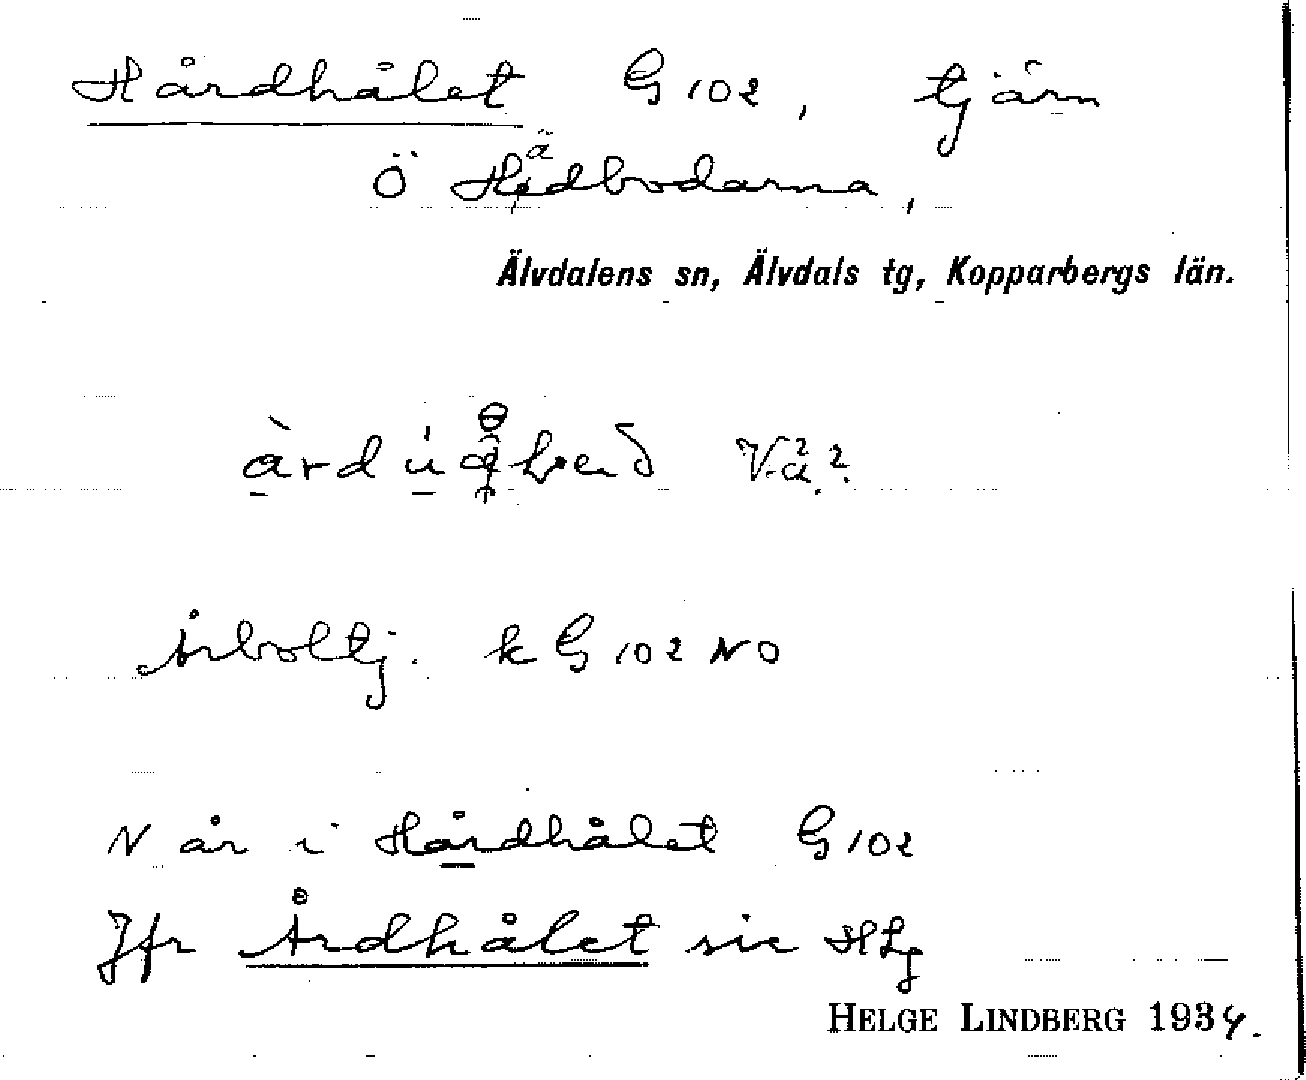 Hårdhålet G 102, tjärn
Ö Hädbodarna,
Älvdalens sn, Älvdals tg, Kopparbergs län.
Vå?
Årboltj. k G 102 NO
N år i Hårdhålet G 102
Jfr Årdhålet sic HLg
HELGE LINDBERG 1934.